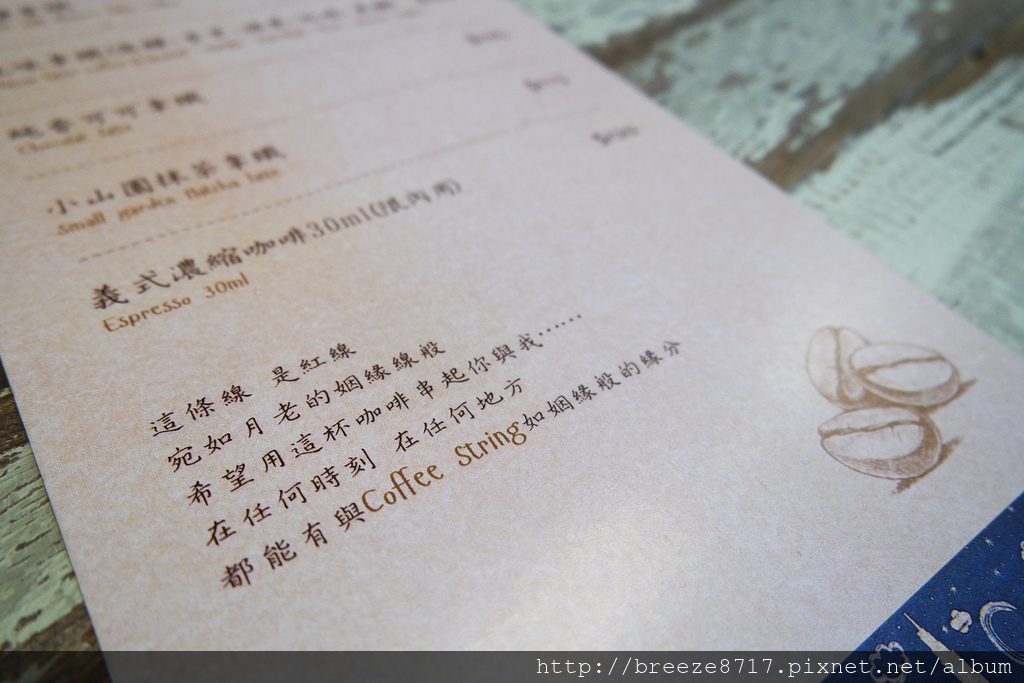 小山園抹茶拿鐵
Small garden Matcha latte
義式濃縮咖啡30ml(限內用)
Espresso 30ml
這條線 是紅線
宛如月老的姻緣線般
希望用這杯咖啡串起你與我......
在任何時刻 在任何地方
都能有與Coffee String如姻緣般的緣分
http://breeze8717.pixnet.net/album